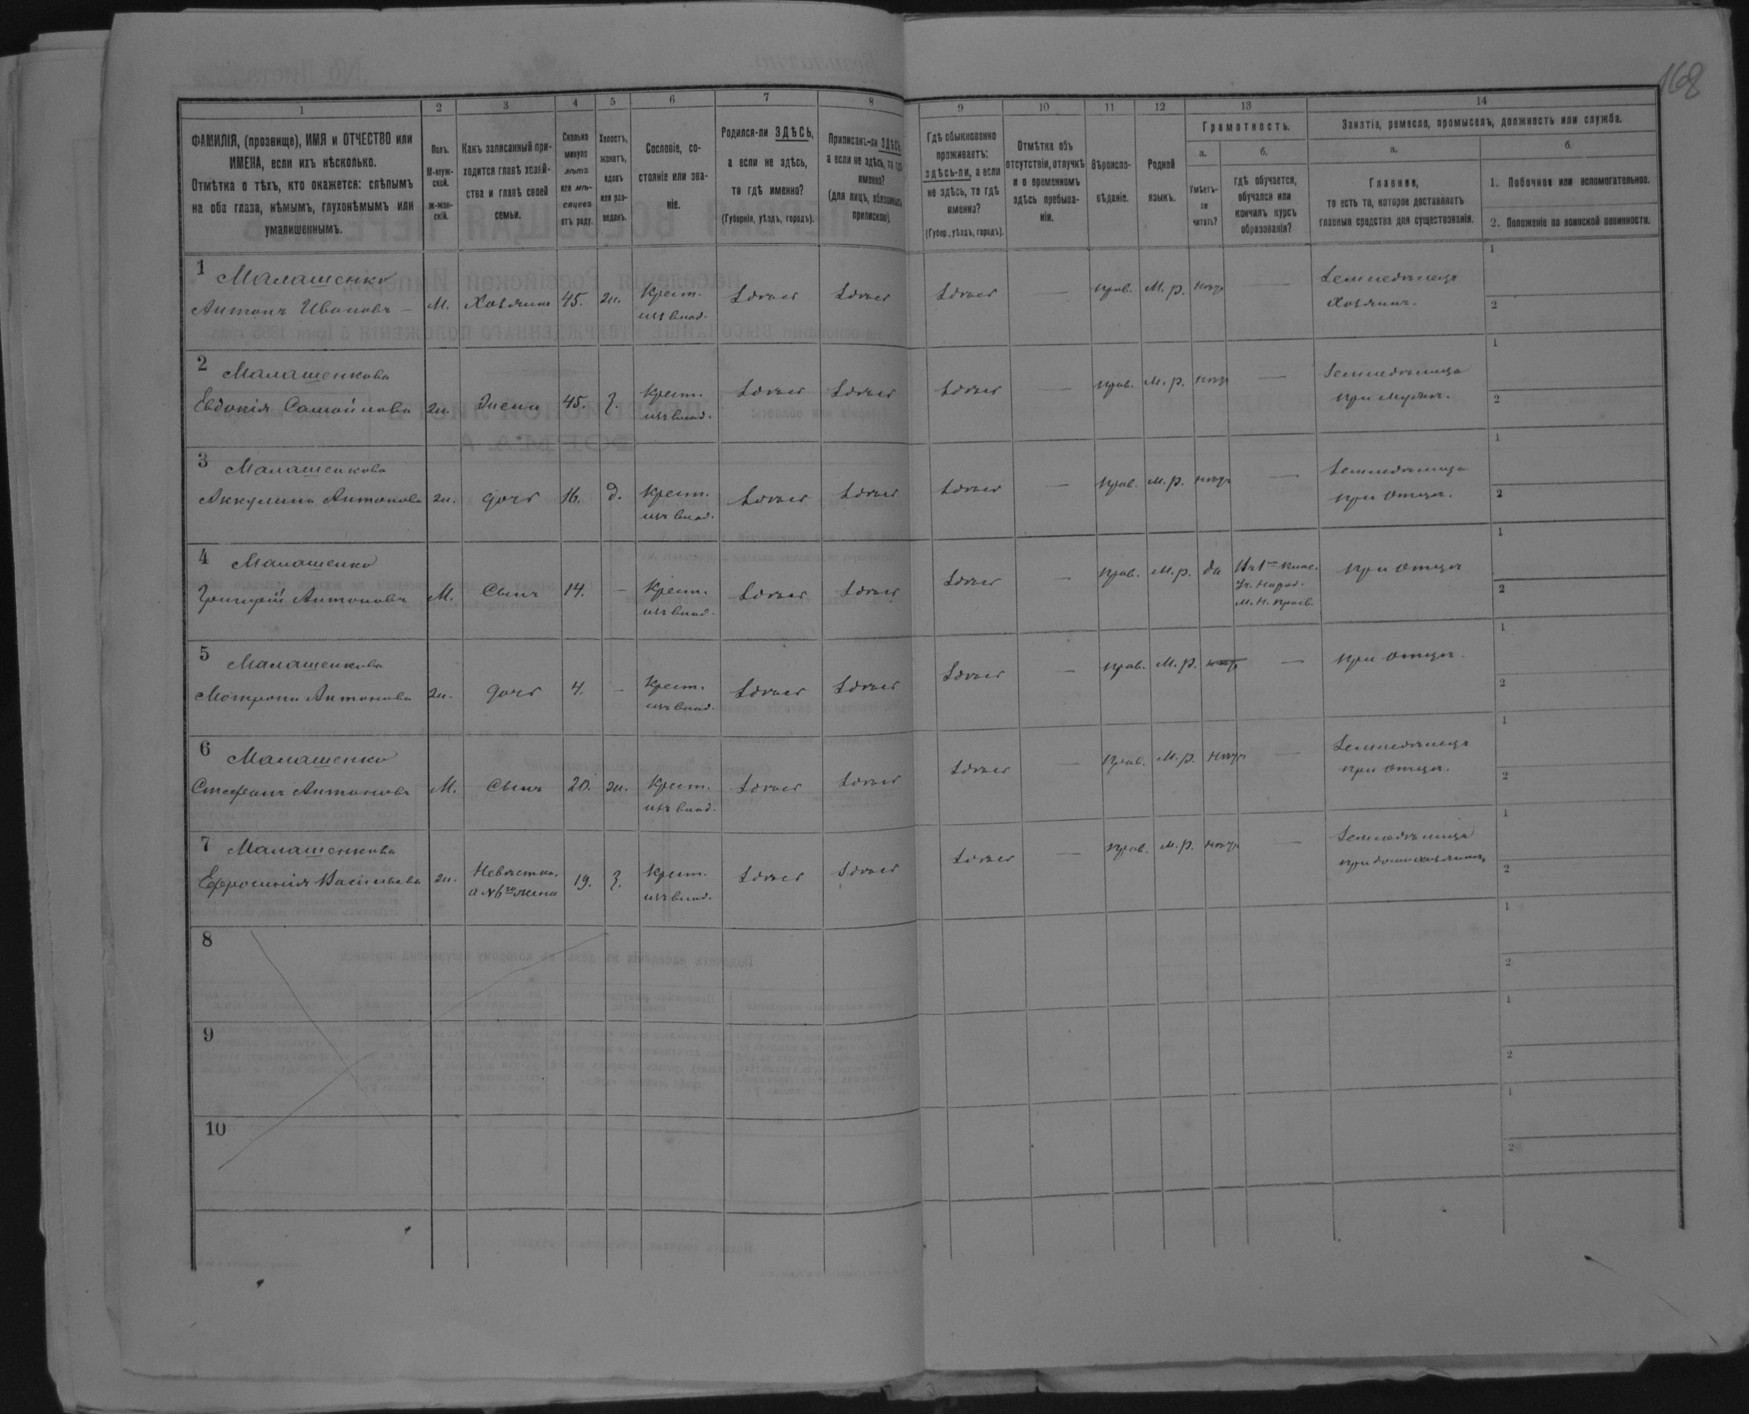 168
1 2 3 4 5 6 7 8 9 10 11 12 13 14
ФАМИЛІЯ, (прозвище), ИМЯ и ОТЧЕСТВО или
ИМЕНА, если ихъ нѣсколько.
Отмѣтка о тѣхъ, кто окажется: слѣпымъ
на оба глаза, нѣмымъ, глухонѣмымъ или
умалишеннымъ.
Полъ.
М-муж-
ской.
Ж-жен-
скій.
Какъ записанный при-
ходится главѣ хозяй-
ства и главѣ своей
семьи.
Сколько
минуло
лѣтъ
или мѣ-
сяцевъ
отъ роду.
Холостъ,
женатъ,
вдовъ
или раз-
веденъ.
Сословіе, со-
стояніе или зва-
ніе.
Родился-ли ЗДѢСЬ,
а если не здѣсь,
то гдѣ именно?
(Губернія, уѣздъ, городъ).
Приписанъ-ли ЗДѢСЬ,
а если не здѣсь, то гдѣ
именно?
(для лицъ, обязанныхъ
припискою).
Гдѣ обыкновенно
проживаетъ:
ЗДѢСЬ-ли, а если
не здѣсь, то гдѣ
именно?
(Губер., уѣздъ, городъ).
Отмѣтка объ
отсутствіи, отлучкѣ
и о временномъ
здѣсь пребыва-
ніи.
Вѣроиспо-
вѣданіе.
Родной
языкъ.
Грамотность.
а.
Умѣетъ-
ли
читать?
б.
гдѣ обучается,
обучался или
кончилъ курсъ
образованія?
Занятіе, ремесло, промыселъ, должность или служба.
а.
Главное,
то есть то, которое доставляетъ
главныя средства для существованія.
б.
1. Побочное или вспомогательное.
2. Положеніе по воинской повинности.
1 Малашенко
Антонъ Ивановъ М. Хозяинъ 45. ж. Крест. Здѣсь Здѣсь Здѣсь — прав. М. р. нѣтъ — Земледѣлецъ
изъ влад. Хозяинъ.
1
2
2 Малашенкова
Евдокія Самойлова ж. Жена 45. З. Крест. Здѣсь Здѣсь Здѣсь — прав. М. р. нѣтъ — Земледѣлица
изъ влад. при мужѣ.
1
2
3 Малашенкова
Аккулина Антонова ж. дочь 16. д. Крест. Здѣсь Здѣсь Здѣсь — прав. М. р. нѣтъ — Земледѣлица
изъ влад. при отцѣ.
1
2
4 Малашенко
Григорій Антоновъ М. Сынъ 14. — Крест. Здѣсь Здѣсь Здѣсь — прав. М. р. да
изъ влад. Народ. при отцѣ
1
2
5 Малашенкова
Мотрона Антонова ж. дочь 4. — Крест. Здѣсь Здѣсь Здѣсь — прав. М. р. нѣтъ — при отцѣ.
изъ влад.
1
2
6 Малашенко
Стефанъ Антоновъ М. Сынъ 20. ж. Крест. Здѣсь Здѣсь Здѣсь — прав. М. р. нѣтъ — Земледѣлецъ
изъ влад. при отцѣ.
1
2
7 Малашенкова
Ефросинія Васильева ж. Невѣстка, 19. З. Крест. Здѣсь Здѣсь Здѣсь — прав. М. р. нѣтъ — Земледѣлица
а №6го жена изъ влад.
1
2
8
1
2
9
1
2
10
1
2